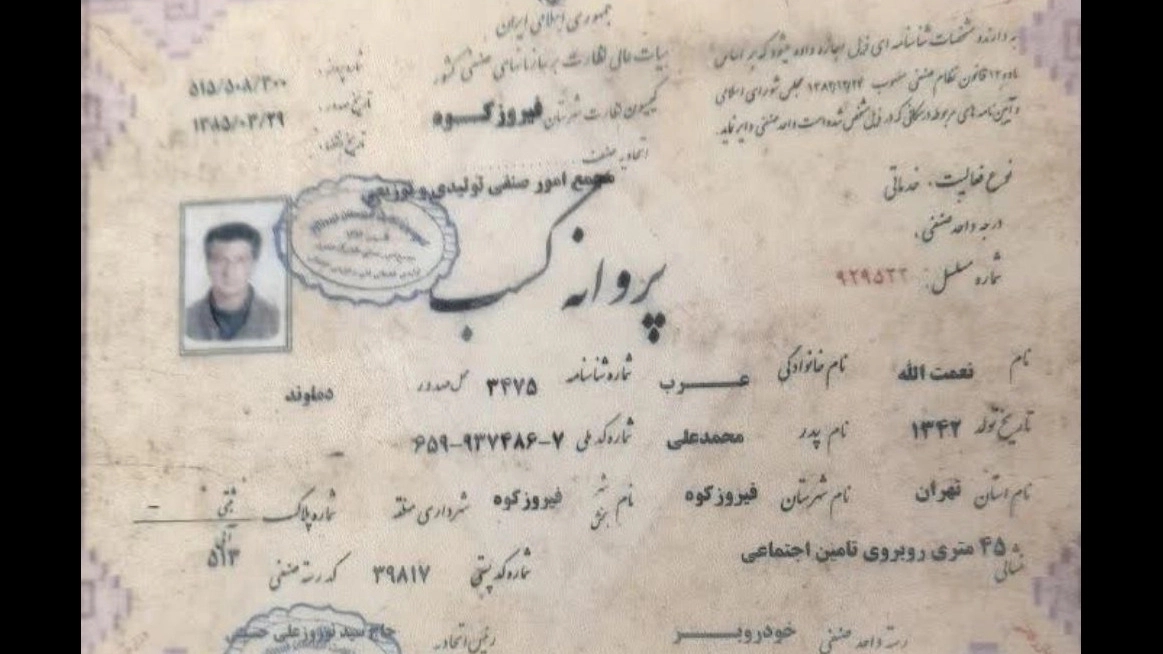 جمهوری اسلامی ایران
هیات عالی نظارت بر سازمانهای صنفی کشور
کمیسیون نظارت شهرستان فیروزکوه
اتحادیه صنف
مجمع امور صنفی تولیدی و توزیعی
به دارنده مشخصات شناسنامه ای ذیل اجازه داده میشود که بر اساس
ماده ۱۲ قانون نظام صنفی مصوب ۱۳۸۲/۱۲/۲۴ مجلس شورای اسلامی
و آیین نامه های مربوطه در مکانی که در ذیل مشخص شده است واحد صنفی دایر نماید.
شماره پروانه: ۵۱۵/۵۰۸/۳۰۰
تاریخ صدور: ۱۳۸۵/۰۳/۲۹
نوع فعالیت: خدماتی
درجه واحد صنفی:
شماره مسلسل: ۹۲۹۵۲۲
پروانه کسب
نام نعمت الله نام خانوادگی عرب شماره شناسنامه ۳۴۷۵ محل صدور دماوند
تاریخ تولد ۱۳۴۲ نام پدر محمدعلی شماره کد ملی ۶۵۹-۹۳۷۴۸۶-۷
نام استان تهران نام شهرستان فیروزکوه نام شهر بخش فیروزکوه شهرداری منطقه شماره پلاک ثبتی -
آبی ۵۱۳
نشانی ۴۵ متری روبروی تامین اجتماعی شماره کد پستی ۳۹۸۱۷ کد رسته صنفی
رسته واحد صنفی خودروبر رئیس اتحادیه حاج سید نوروزعلی